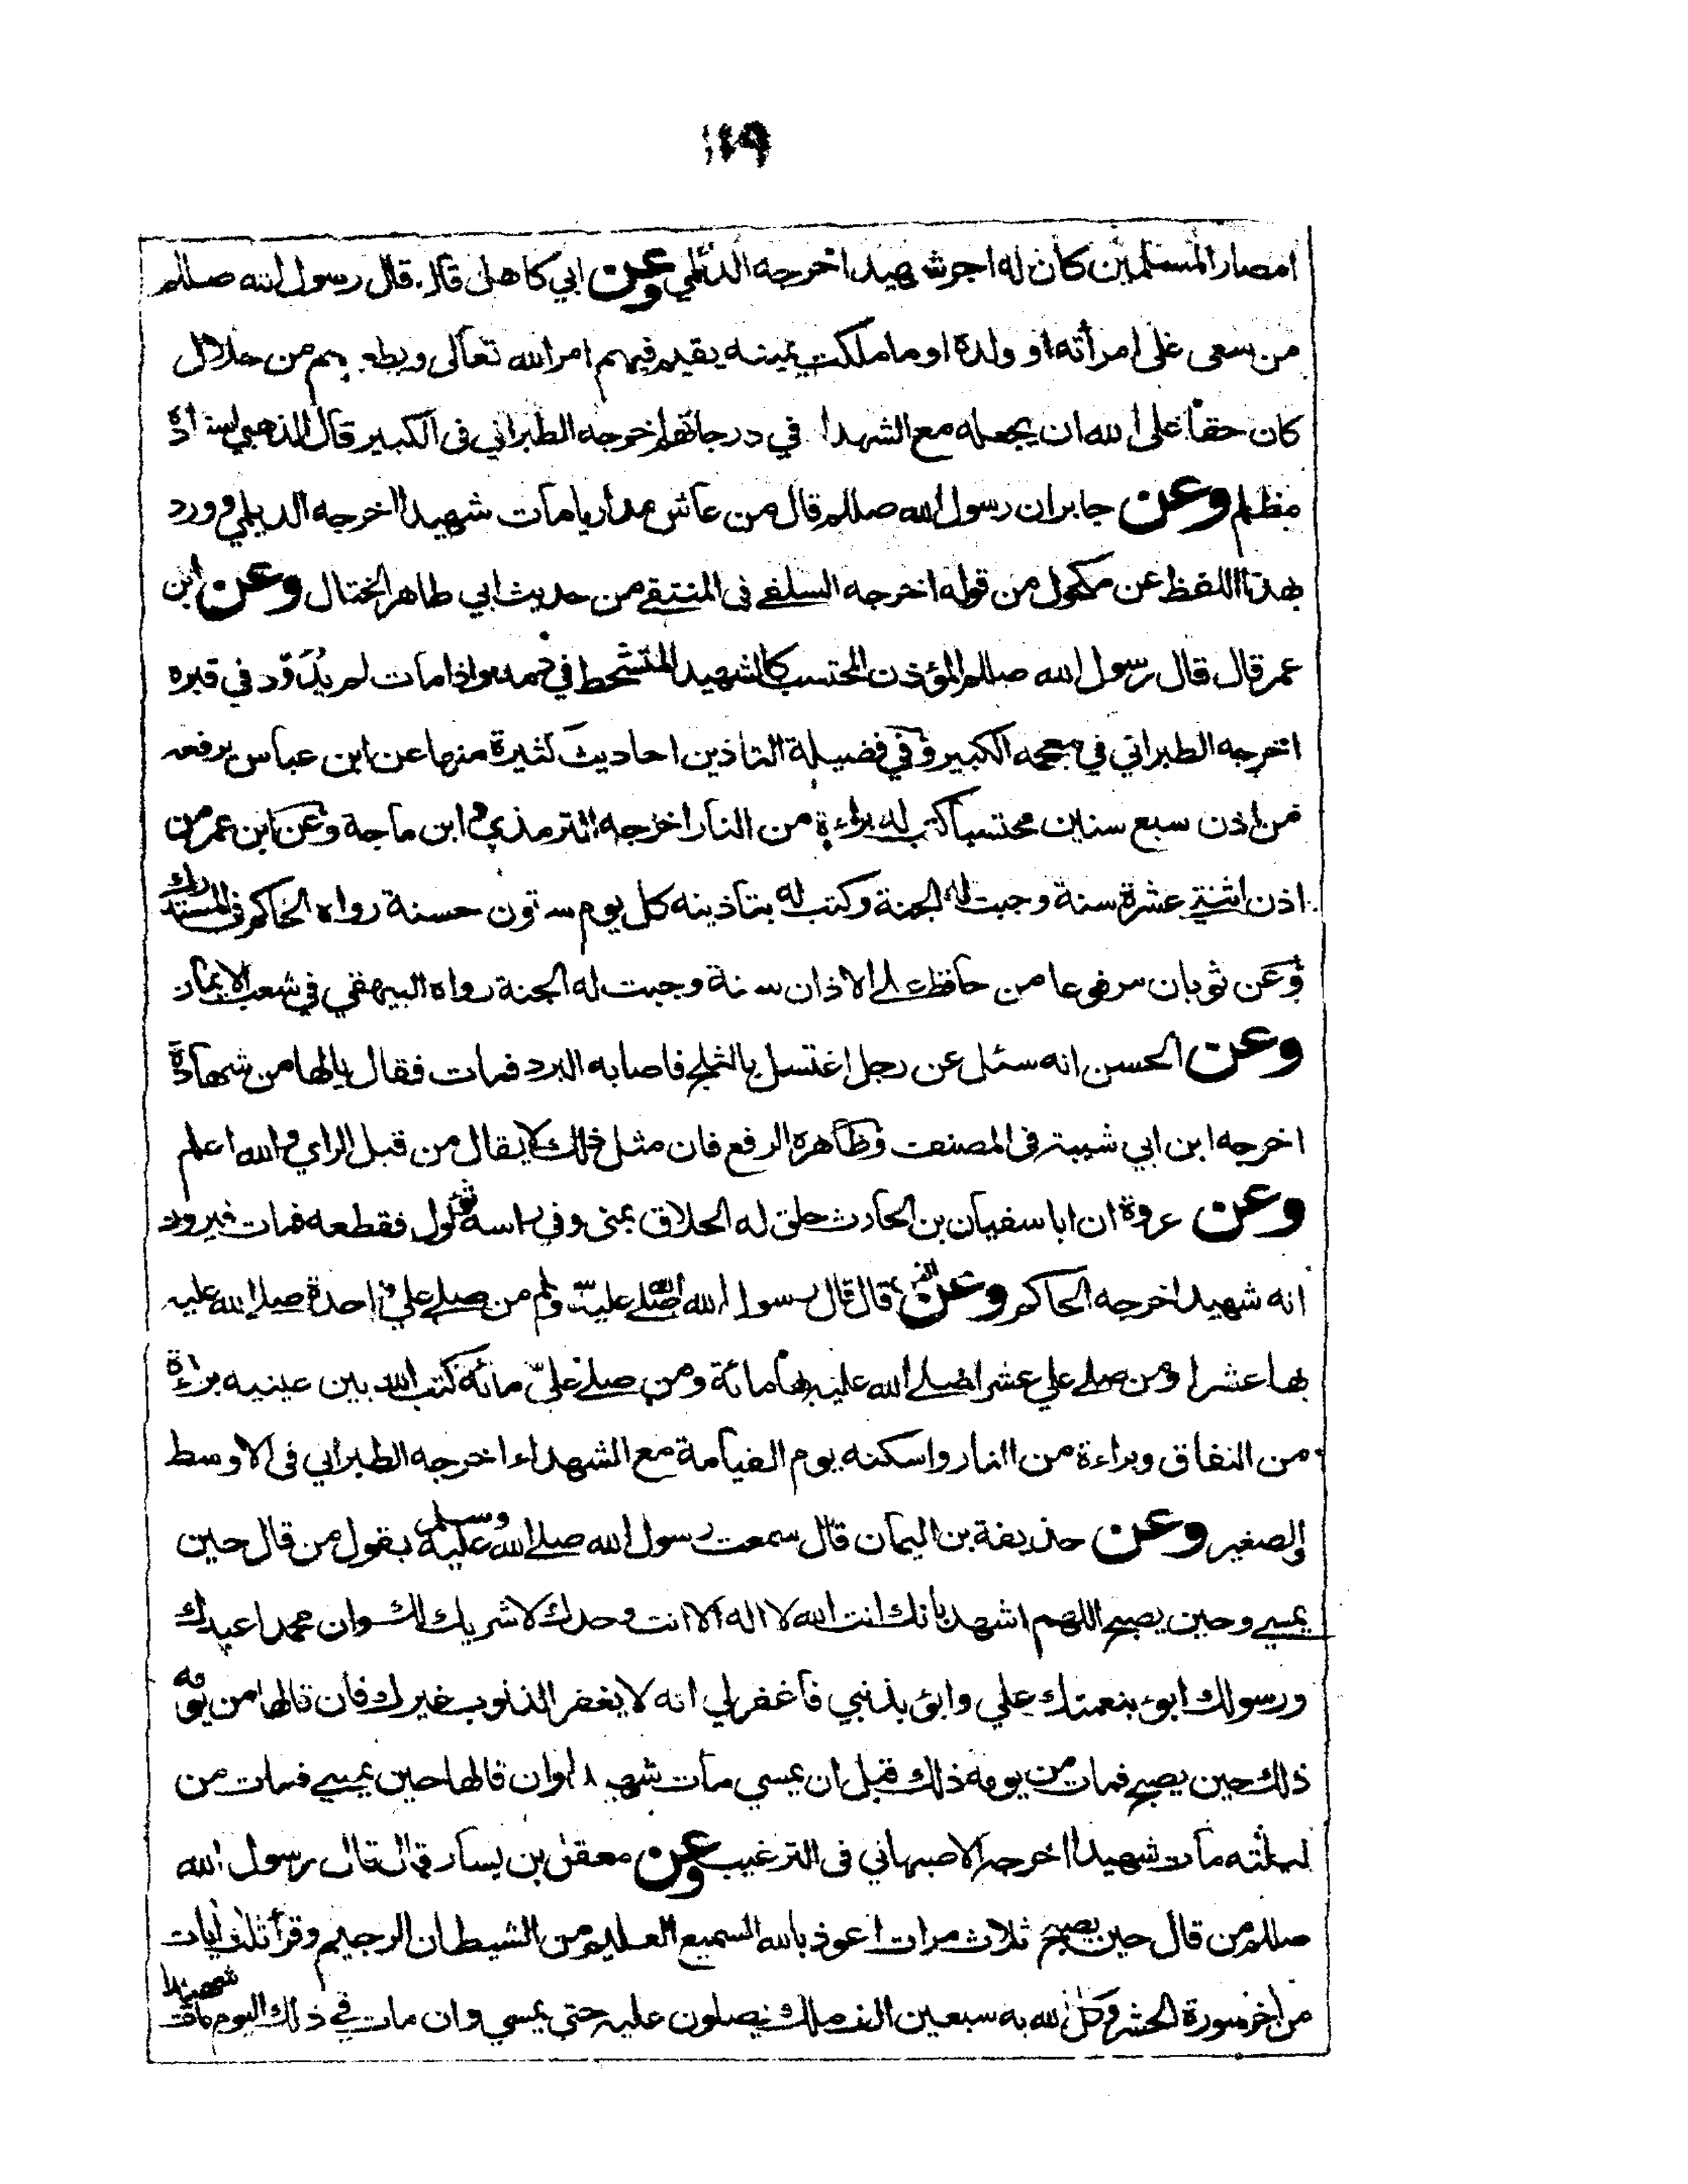 ١١٩
امصار المسلمين كان له اجر شهيد اخرجه الديلمي وعن ابي كاهل قال قال رسول الله صللم
من سعى على امرأته او ولدة او ما ملكت يمينه يقيم فيهم امر الله تعالى ويطعمهم من حلال
كان حقا على الله ان يجعله مع الشهدا في درجاتهم اخرجه الطبراني فى الكبير قال الذهبي اسنادة
مظلم وعن جابر ان رسول الله صللم قال من عاش مداريا مات شهيدا اخرجه الديلمي وورد
بهذا اللفظ عن مكحول من قوله اخرجه السلفے فى المنتقے من حديث ابي طاهر الختال وعن ابن
عمر قال قال رسول الله صللم المؤذن المحتسب كالشهيد المتشحط في دمه واذا مات لم يدود في قبره
اخرجه الطبراني في معجمه الكبير وفي فضيلة التاذين احاديث كثيرة منها عن ابن عباس يرفعه
من اذن سبع سنين محتسبا كتب له براءة من النار اخرجه الترمذي وابن ماجة وعن ابن عمر من
اذن اثنتي عشرة سنة وجبت له الجنة وكتب له بتاذينه كل يوم ستون حسنة رواه الحاكم فى المستدرك
وعن ثوبان مرفوعا من حافظ علے الاذان سنة وجبت له الجنة رواه البيهقي في شعب الايمان
وعن الحسن انه سئل عن رجل اغتسل بالثلج فاصابه البرد فمات فقال يالها من شهادة
اخرجه ابن ابي شيبة فى المصنف وظاهره الرفع فان مثل ذلك لا يقال من قبل الراي والله اعلم
وعن عروة ان ابا سفيان بن الحارث حلق له الحلاق بمنى وفي راسه ثؤلول فقطعه فمات فيرون
انه شهيد اخرجه الحاكم وعن انس قال قال رسول الله صلے الله عليه ولم من صلے علي واحدة صلے الله عليه
بها عشرا ومن صلے علي عشرا صلے الله عليه بها مائة ومن صلے علي مائة كتب الله بين عينيه براءة
من النفاق وبراءة من النار واسكنه يوم القيامة مع الشهداء اخرجه الطبراني فى الاوسط
والصغير وعن حذيفة بن اليمان قال سمعت رسول الله صلے الله عليه وسلم يقول من قال حين
يمسے وحين يصبح اللهم اشهد بانك انت الله لا اله الا انت وحدك لا شريك لك وان محمدا عبدك
ورسولك ابوء بنعمتك علي وابوء بذنبي فاغفر لي انه لا يغفر الذنوب غيرك فان قالها من يومه
ذلك حين يصبح فمات من يومه ذلك قبل ان يمسي مات شهيدا وان قالها حين يمسے فمات من
ليلته مات شهيدا اخرجه الاصبهاني فى الترغيب وعن معقل بن يسار قال قال رسول الله
صللم من قال حين يصبح ثلاث مرات اعوذ بالله السميع العليم من الشيطان الرجيم وقرأ ثلث ايات
من اخر سورة الحشر وكل الله به سبعين الف ملك يصلون عليه حتى يمسي وان مات في ذلك اليوم مات شهيدا